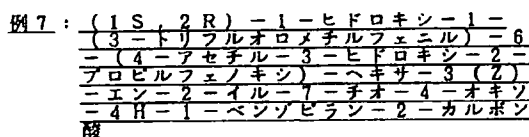 例7:(1S,2R)-1-ヒドロキシ-1-
(3-トリフルオロメチルフェニル)-6
-(4-アセチル-3-ヒドロキシ-2-
プロピルフェノキシ)-ヘキサ-3(Z)
-エン-2-イル-7-チオ-4-オキソ
-4H-1-ベンゾピラン-2-カルボン
酸